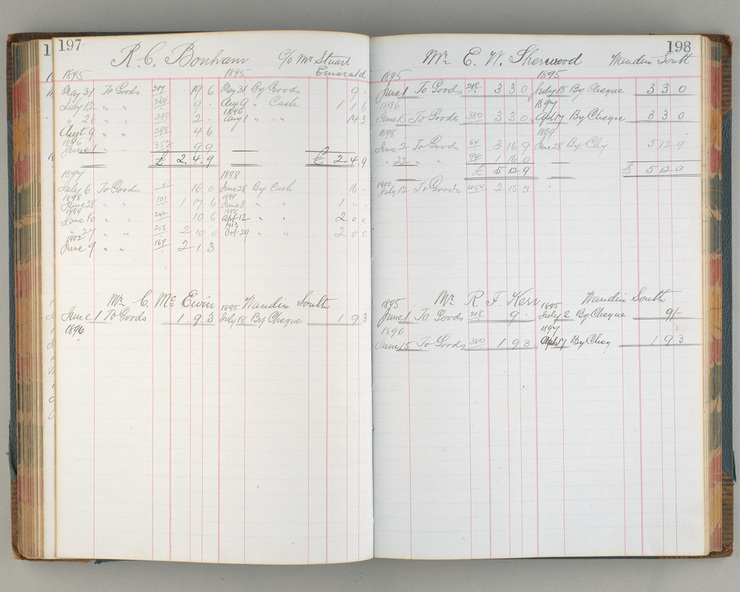 197
R. C. Bonham C/o Mr Stuart
Emerald
1895 1895
May 31 To Goods 19 6 May 31 By Goods 9 -
July 12 " " 9 - Aug 9 " Cash 1 1 6
" 26 " " 2 - 1896 Aug 1 " 14 3
Augt 9 " " 4 6
1896
June 1 " " 9 9
£ 2 4 9 £ 2 4 9
1897 1898
July 6 To Goods 16 0 June 28 By Cash 16 -
1898
June 28 " " 1 7 6 1 - -
1899
June 10 " " 10 6 Apl 12 " " 2 0 0
" 27 " " 2 10 0 Oct 29 " " 2 0 0
1902
June 9 " " 169 2 1 3
Mr C. McEwin 1895 Wandin South
June 1 To Goods 1 9 3 July 18 By Cheque 1 9 3
1896
198
Mr E. W. Sherwood Wandin South
1895 1895
June 1 To Goods 218 3 3 0 July 18 By Cheque 3 3 0
1896 1897
June 15 To Goods 380 3 3 0 Apl 17 By Cheque 3 3 0
1898 1899
June 2 To Goods 3 16 9 June 28 By Chq 5 12 9
" 22 " 1 16 0
£ 5 12 9 £ 5 12 9
July 12 To Goods 2 15 3
1895 Mr R F Kerr 1895 Wandin South
June 1 To Goods 218 9 - July 2 By Cheque 9/-
1896 1897
June 15 To Goods 380 1 9 3 Apl 17 By Cheq 1 9 3